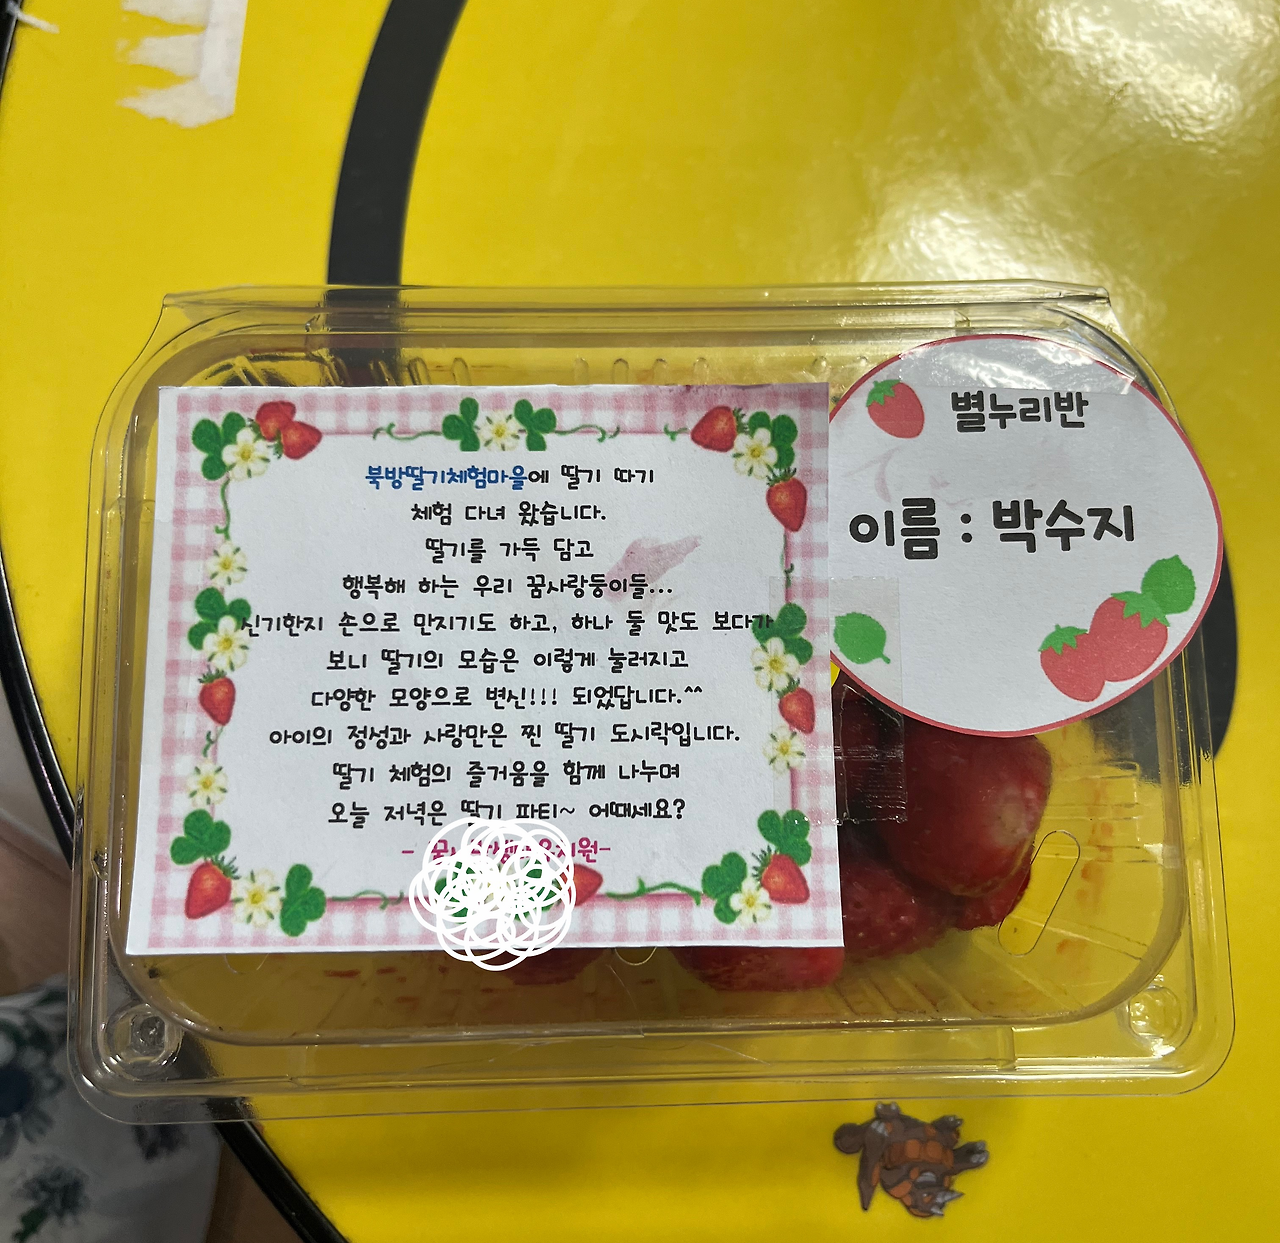 북방딸기체험마을에 딸기 따기
체험 다녀 왔습니다.
딸기를 가득 담고
행복해 하는 우리 꿈사랑둥이들...
신기한지 손으로 만지기도 하고, 하나 둘 맛도 보다가
보니 딸기의 모습은 이렇게 눌러지고
다양한 모양으로 변신!!! 되었답니다.^^
아이의 정성과 사랑만은 찐 딸기 도시락입니다.
딸기 체험의 즐거움을 함께 나누며
오늘 저녁은 딸기 파티~ 어때세요?
별누리반
이름 : 박수지